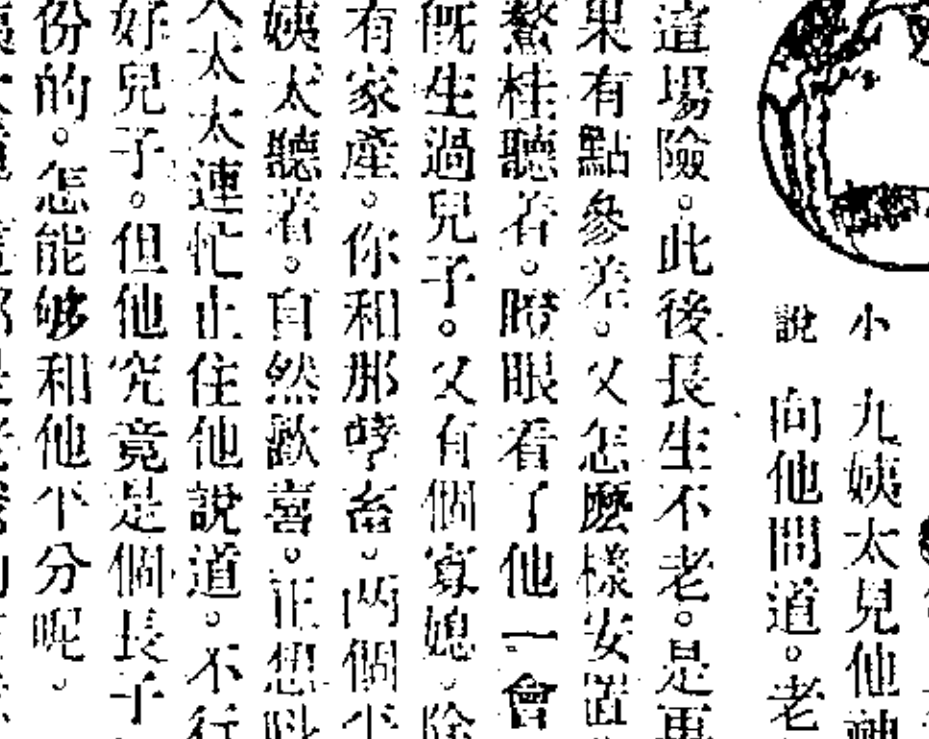 小說
九姨太見他神
向他問道。老
這場險。此後長生不老。是再
果有點參差。又怎麼樣安置
鰲桂聽者。瞪眼看了他一會
旣生過兒子。又有個寡媳。除
有家產。你和那孽畜。兩個平
姨太聽著。自然歡喜。正想
太太連忙止住他說道。不行
好兒子。但他究竟是個長子
份的。怎能够和他平分呢。